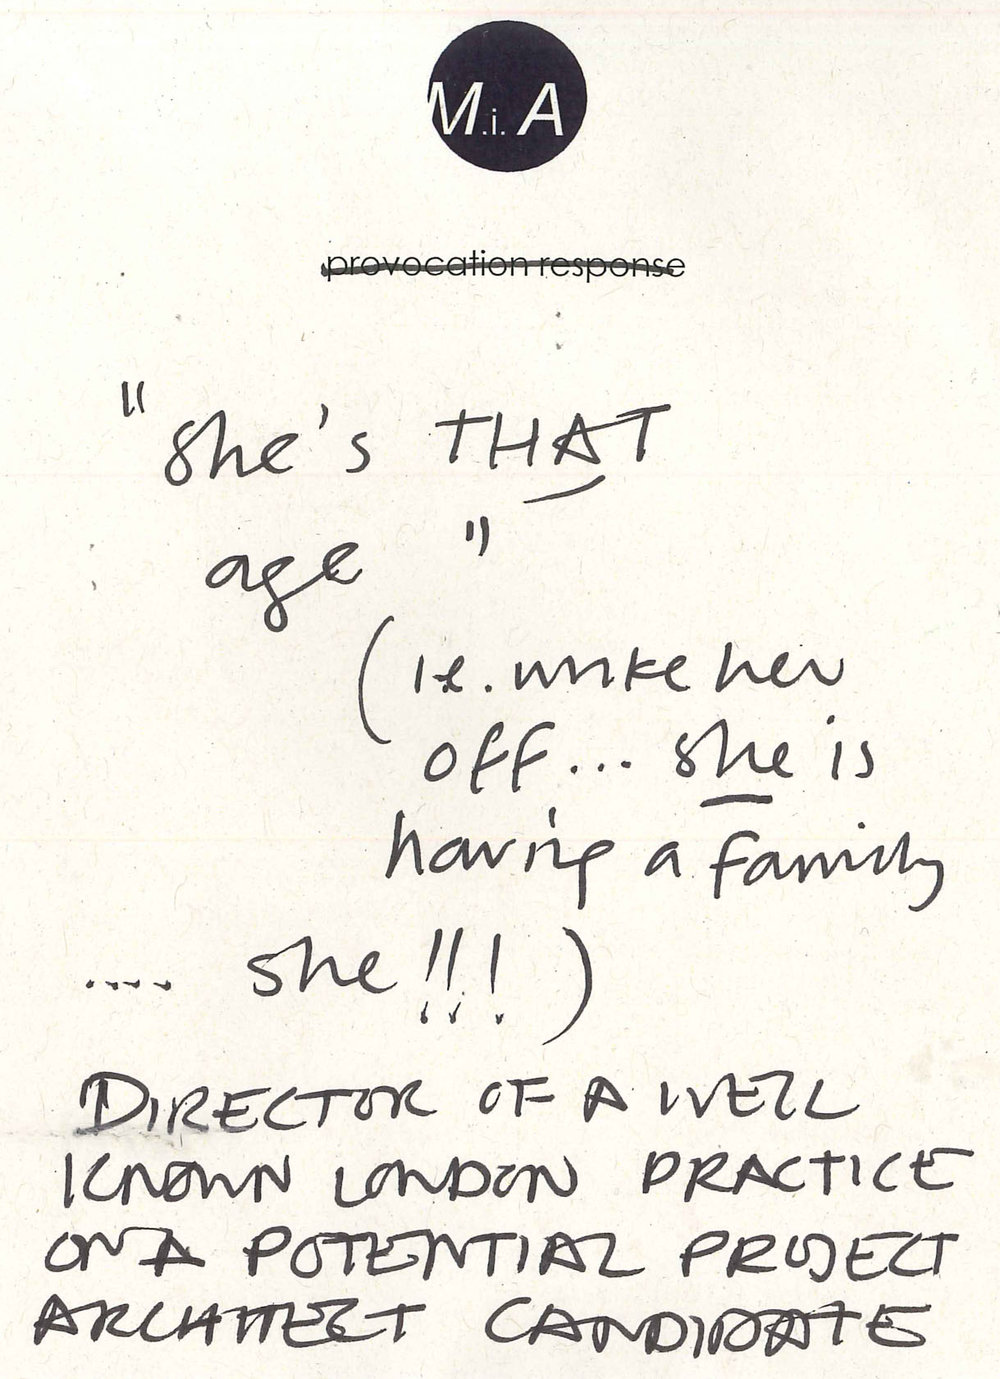 M.i.A
provocation response
"she's THAT
age "
(ie. write her
off... she is
having a family
.... she!!!)
DIRECTOR OF A WELL
KNOWN LONDON PRACTICE
ON A POTENTIAL PROJECT
ARCHITECT CANDIDATE